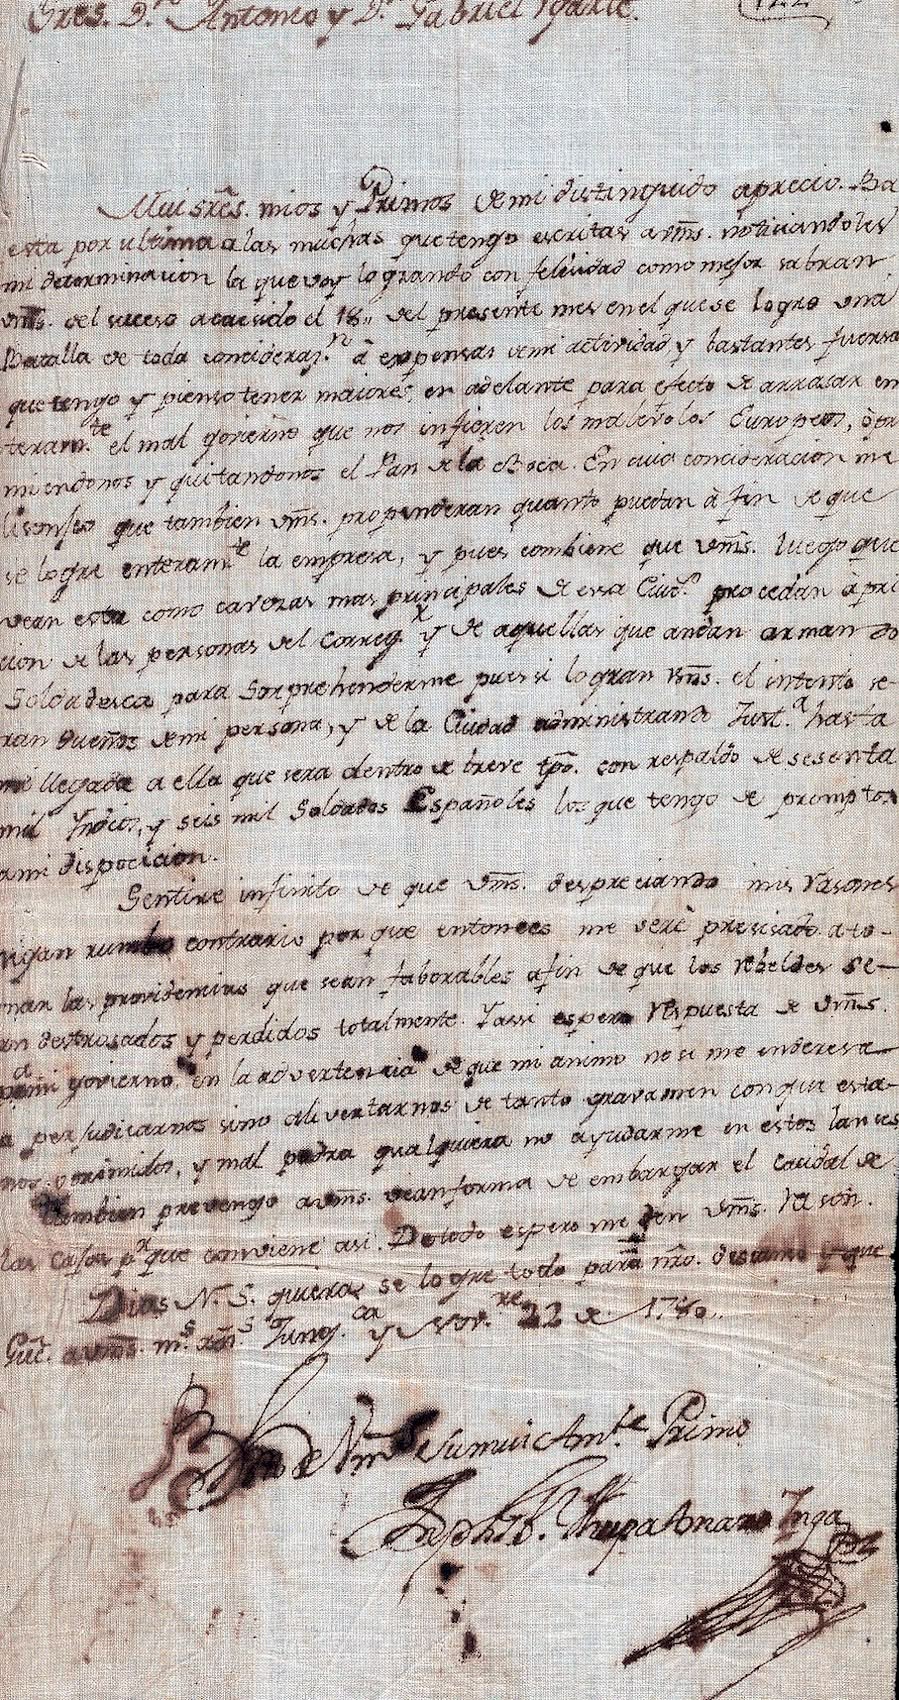 Sres. Dn. Antonio y Dn. Gabriel Ugarte.
Mui sres. mios y Primos de mi distinguido aprecio. Ba
esta por ultima a las muchas que tengo escritas a vms. noticiandoles
mi determinacion la que voy lograndо con felicidad como mejor sabran
vms. del suceso acaesido el 18,, del presente mes en el que se logro una
Batalla de toda conciderazn. à expensas de mi actividad, y bastantes fuersas
que tengo y pienso tener maiores, en adelante para efecto de arrasar en
teramte. el mal govierno que nos infieren los malevolos Europeos, òpri
miendonos y quitandonos el Pan de la Boca. En cuia concideracion me
lisonjeo que tambien vms. propenderan quanto puedan à fin de que
se logre enteramte. la empresa, y pues combiene que vms. luego que
vean esta como cavezas mas principales de esa Ciud. procedan à pri
cion de las personas del Corregr. y de aquellas que andan armando
Soldadesca para Sorprehenderme pues si logran vms. el intento se-
ran dueños de mi persona, y de la Ciudad administrando Justa. hasta
mi llegada a ella que sera dentro de breve tpo. con respaldo de sesenta
mil Yndios, y seis mil Soldados Españoles los que tengo de promptos
a mi disposicion.
Sentire infinito de que vms. despreciando mis rasones
sigan rumbo contrario por que entonces me serè presisado a to-
mar las providencias que sean faborables a fin de que los rebeldes se-
an destrosados y perdidos totalmente. Y assi espero respuesta de vms.
mi govierno en la advertencia de que mi animo no se me enderesa
a perjudicarnos sino alivertarnos de tanto gravamen con que esta-
mos oprimidos, y mal podra qualquiera no ayudarme en estos lances
Tambien prevengo a vms. vean forma de embargar el caudal de
las Caxas pr. que conviene asi. De todo espero me den vms. rason.
Dios N. S. quiera se logre todo para nro. descanso y que
Gue. a vms. ms. as. Tungca. y Novre. 22 de 1780..
de Vms su mui Amte. Primo
Joseph Thupa Amaro Inga